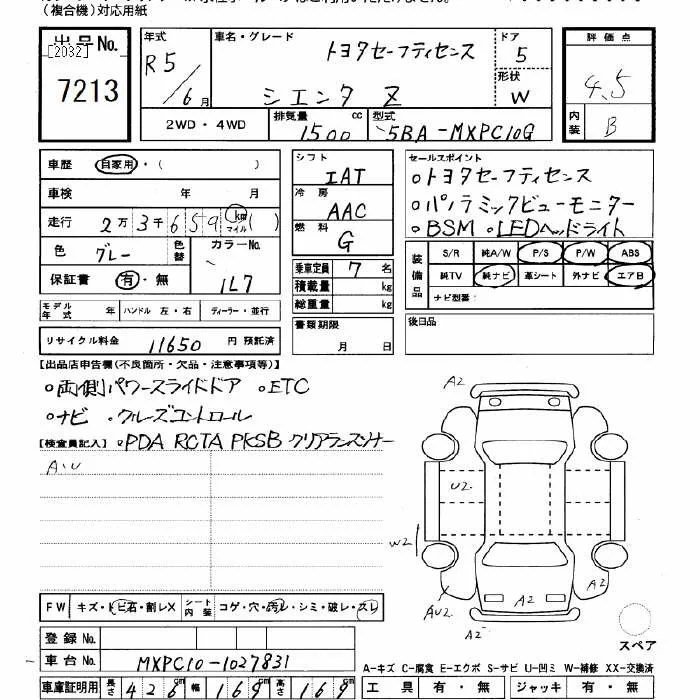 (複合機)対応用紙
出品No.
[2032]
7213
年式 車名・グレード ドア 評価点
R5/6月 トヨタセーフティセンス 5
シエンタ Z 形状 W
4.5
内装 B
2WD・4WD 排気量 1500 cc 型式 5BA-MXPC10G
車歴 自家用・( )
車検 年 月
走行 2万3千659 (km マイル)
色 グレー 色替 カラーNo. 1L7
保証書 有・無
シフト IAT
冷房 AAC
燃料 G
乗車定員 7 名
積載量 kg
総重量 kg
書類期限 月 日
セールスポイント
○トヨタセーフティセンス
○パノラミックビューモニター
○BSM ○LEDヘッドライト
装備品 S/R 純A/W P/S P/W ABS
純TV 純ナビ 革シート 外ナビ エアB
ナビ型番:
後日品
モデル年式 年 ハンドル 左・右 ディーラー・並行
リサイクル料金 11650 円 預託済
【出品店申告欄(不良箇所・欠品・注意事項等)】
○両側パワースライドドア ○ETC
○ナビ ・クルーズコントロール
【検査員記入】 ○PDA RCTA PKSB クリアランスソナー
A・U
A2
U2
W2
AU2
A2
A2
A2
スペア
FW キズ・トビ石・割レX シート内装 コゲ・穴・汚レ・シミ・破レ・スレ
登録No.
車台No. MXPC10-1027831
車庫証明用 長さ 426cm 幅 169cm 高さ 169cm
A-キズ C-腐食 E-エクボ S-サビ U-凹ミ W-補修 XX-交換済
工具 有・無 ジャッキ 有・無